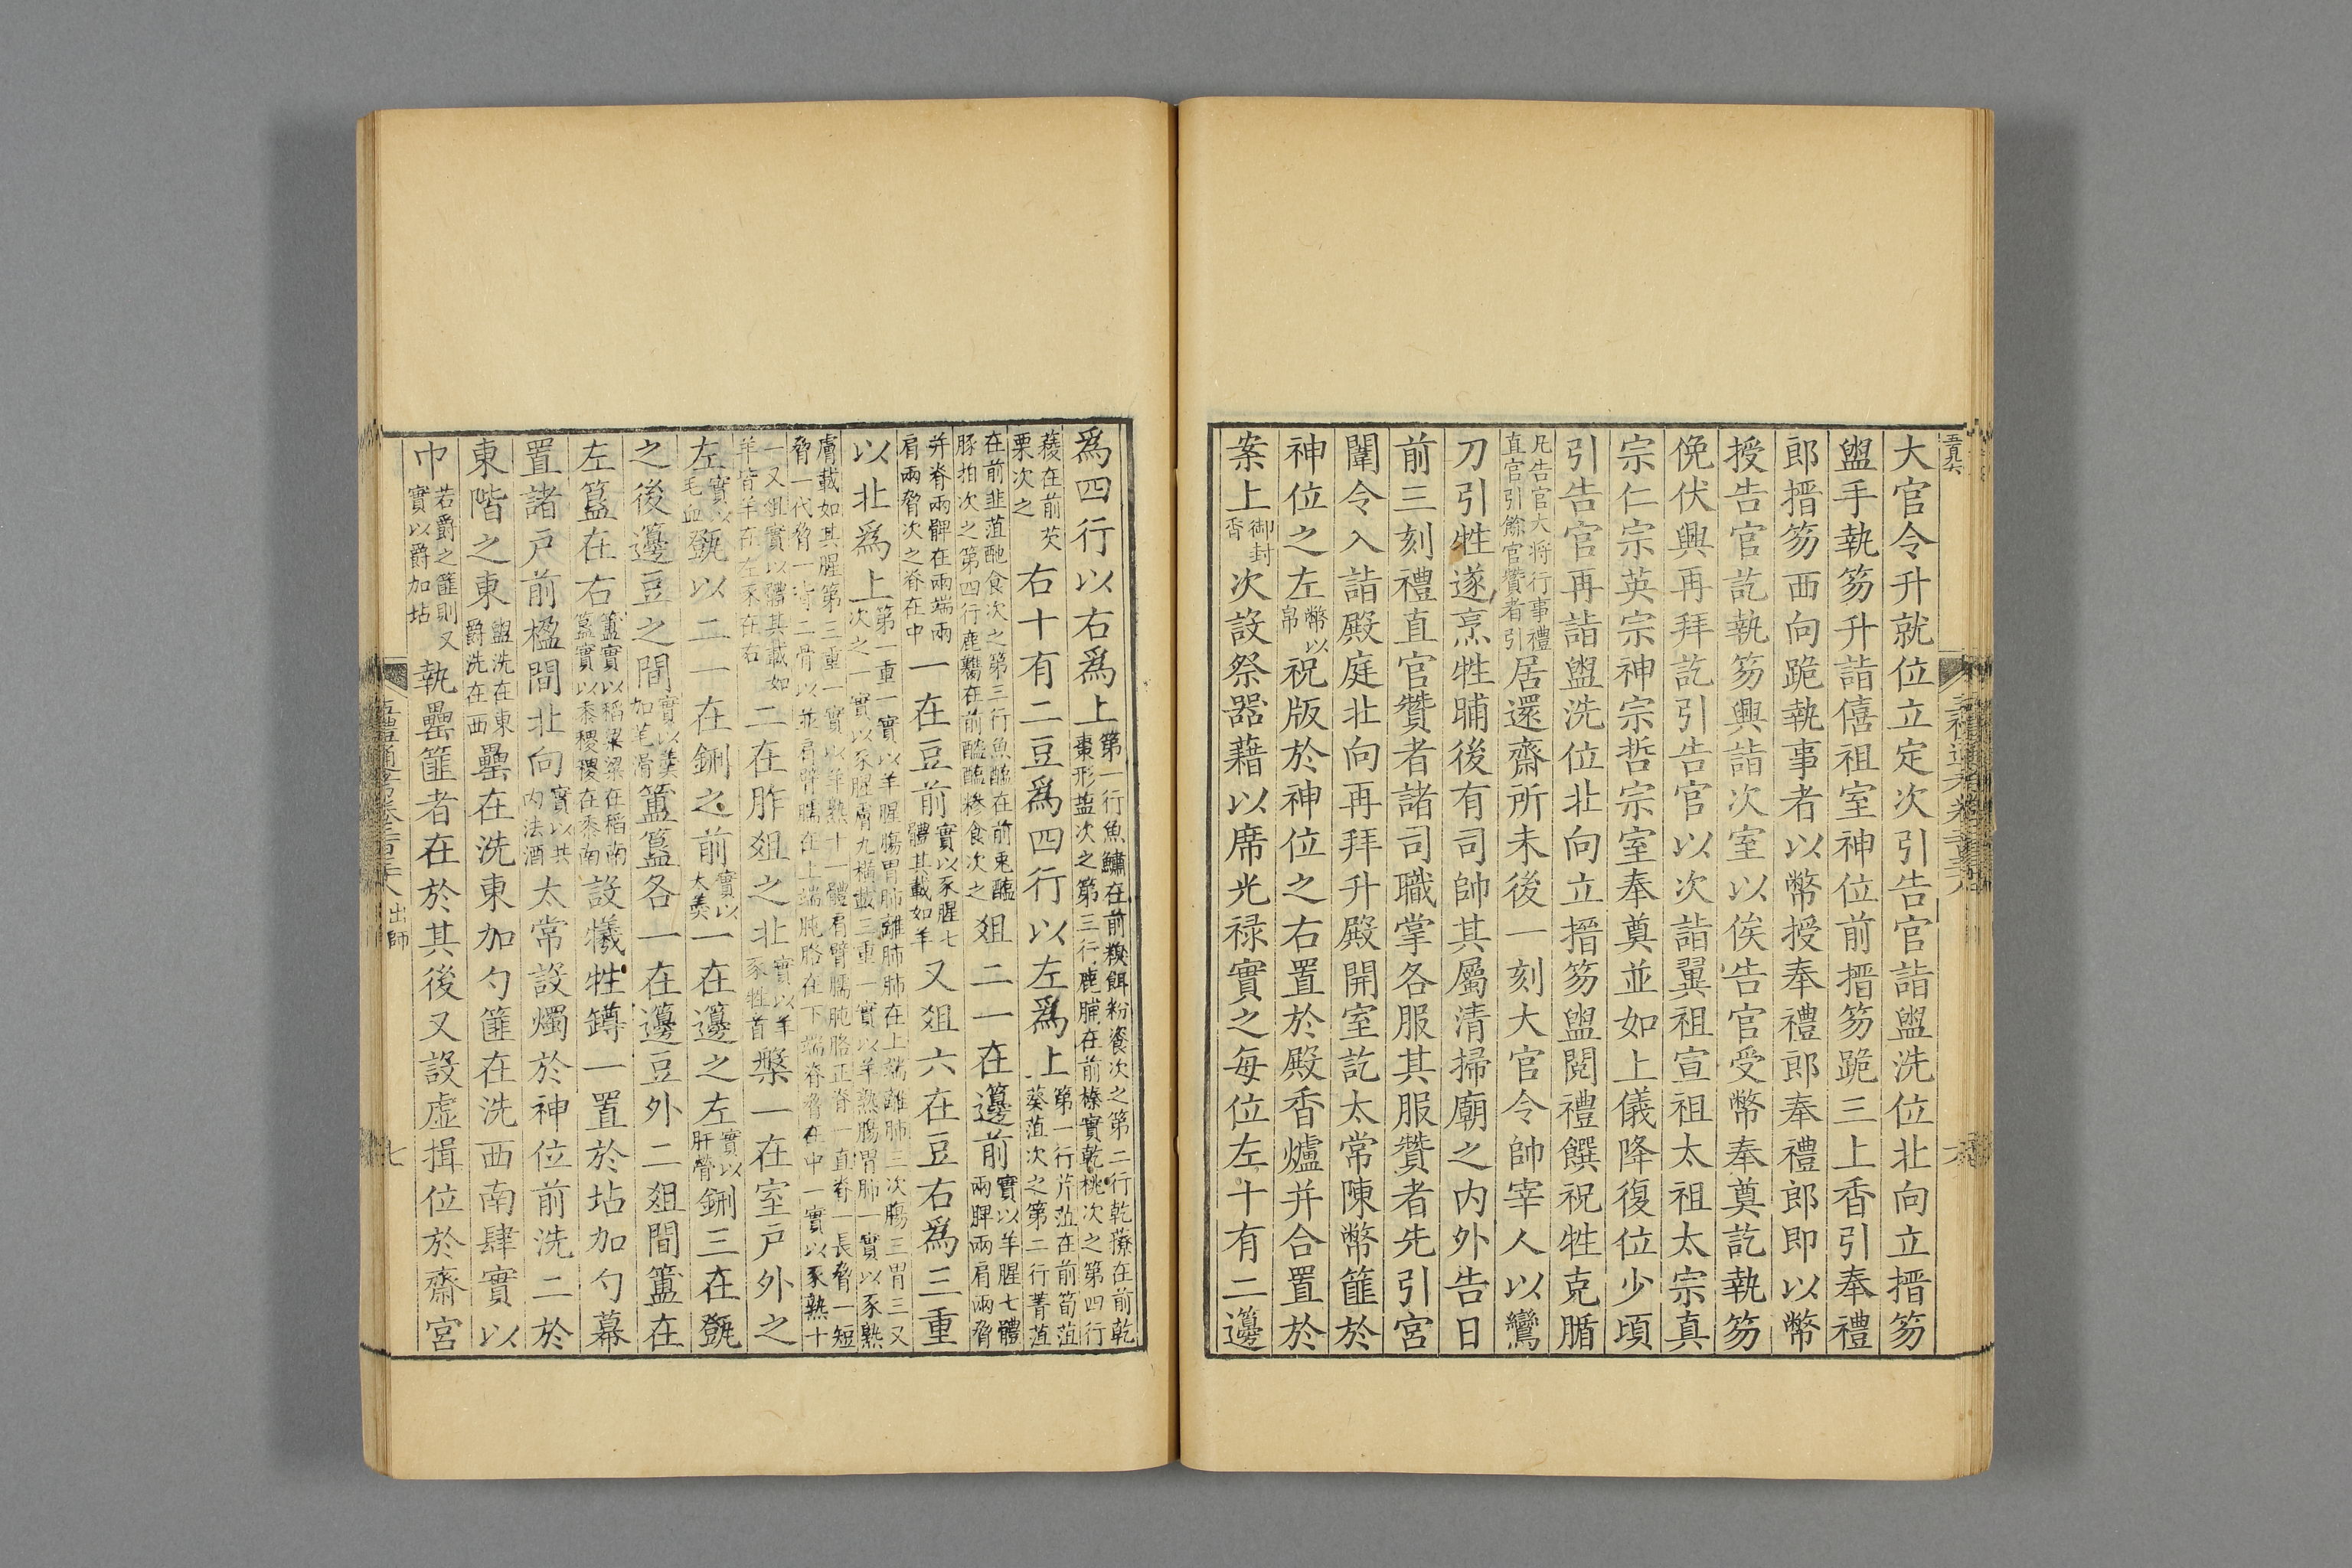 大官令升就位立定次引告官詣盥洗位北向立搢笏
盥手執笏升詣僖祖室神位前搢笏跪三上香引奉禮
郎搢笏西向跪執事者以幣授奉禮郎奉禮郎即以幣
授告官訖執笏興詣次室以俟告官受幣奉奠訖執笏
俛伏興再拜訖引告官以次詣翼祖宣祖太祖太宗真
宗仁宗英宗神宗哲宗室奉奠並如上儀降復位少頃
引告官再詣盥洗位北向立搢笏盥閱禮饌祝牲克腯
凡告官大將行事禮直官引餘官贊者引居還齋所未後一刻大官令帥宰人以鸞
刀引牲遂烹牲晡後有司帥其屬清掃廟之内外告日
前三刻禮直官贊者諸司職掌各服其服贊者先引宮
闈令入詣殿庭北向再拜升殿開室訖太常陳幣篚於
神位之左幣以帛祝版於神位之右置於殿香爐并合置於
案上御封香次設祭器藉以席光祿實之每位左十有二籩
爲四行以右爲上第一行魚鱐在前糗餌粉餈次之第二行乾䕩在前乾棗形鹽次之第三行鹿脯在前榛實乾桃次之第四行
蔆在前芡栗次之右十有二豆爲四行以左爲上第一行芹菹在前筍菹葵菹次之第二行菁菹
在前韭菹酏食次之第三行魚醢在前兎醢豚拍次之第四行鹿臡在前醓醢糝食次之俎二一在籩前實以羊腥七體兩髀兩肩兩脅
并脊兩髀在兩端兩肩兩脅次之脊在中一在豆前實以豕腥七體其載如羊又俎六在豆右爲三重
以北爲上第一重一實以羊腥腸胃肺離肺肺在上端離肺三次腸三胃三又次之一實以豕腥膚九橫載三重一實以羊熟腸胃肺一實以豕熟
膚載如其腥第三重一實以羊熟十一體肩臂臑肫胳正脊一直脊一長脅一短脅一代脅一皆二骨以並肩臂臑在上端肫胳在下端脊脅在中一實以豕熟十
一又俎實以體其載如羊皆羊在左豕在右二在胙俎之北實以羊豕牲首槃一在室戶外之
左實以毛血㽅以二一在鉶之前實以大羹一在籩之左實以肝膋鉶三在㽅
之後籩豆之間實以羹加芼滑簠簋各一在籩豆外二俎間簠在
左簋在右簠實以稻粱粱在稻南簋實以黍稷稷在黍南設犧牲罇一置於坫加勺幕
置諸戶前楹間北向實以共内法酒太常設燭於神位前洗二於
東階之東盥洗在東爵洗在西罍在洗東加勺篚在洗西南肆實以
巾若爵之篚則又實以爵加坫執罍篚者在於其後又設虛揖位於齋宮
五禮通考卷二百三十八 出師 七